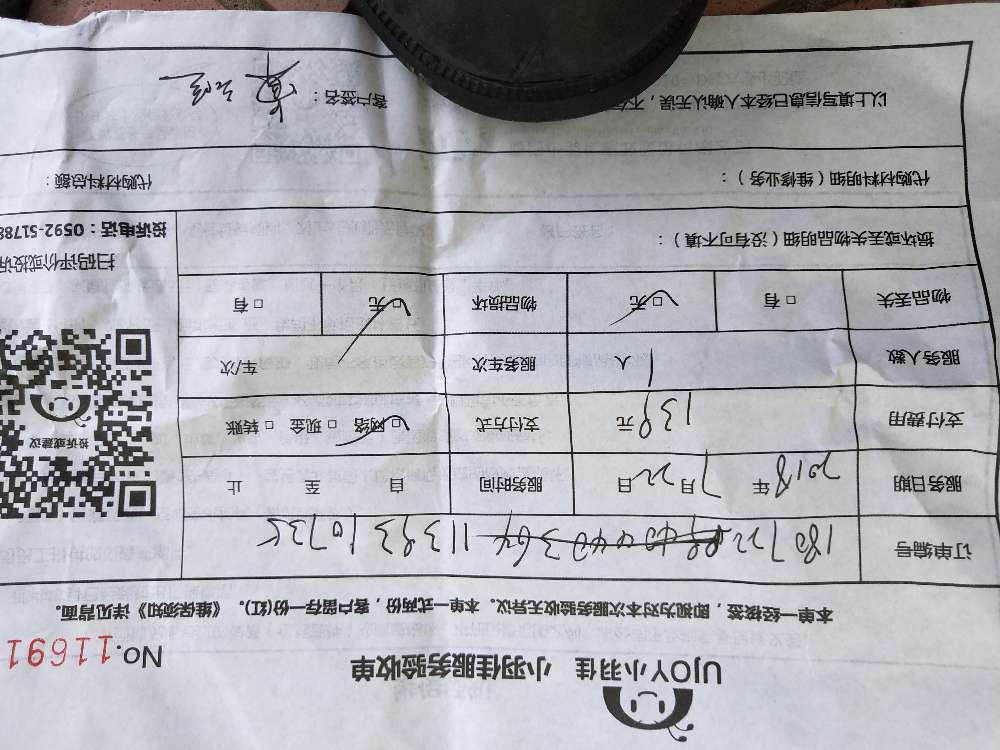 UJOY小羽佳 小羽佳服务验收单
No.11691
本单一经核签，即视为对本次服务验收无异议。本单一式两份，客户留存一份(红)。《维保须知》详见背面。
订单编号 180722 1139310735
服务日期 2018年7月22日 服务时间 自 至 止
支付费用 139元 支付方式 □网络 □现金 □转账
服务人数 1人 服务车次 车/次
物品丢失 □有 □无 物品损坏 □无 □有
投诉或建议
扫码评价或投诉
投诉电话：0592-51788
损坏或丢失物品明细（没有可不填）：
代购材料明细（维修业务）： 代购材料总额：
以上填写信息已经本人确认无误，不 客户签名：